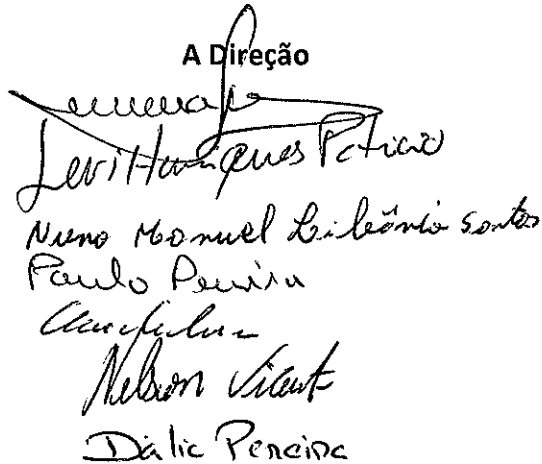 A Direção
Levi Henriques Patrício
Nuno Manuel Libânio Santos
Paulo Pereira
Nelson Vicente
Dália Pereira